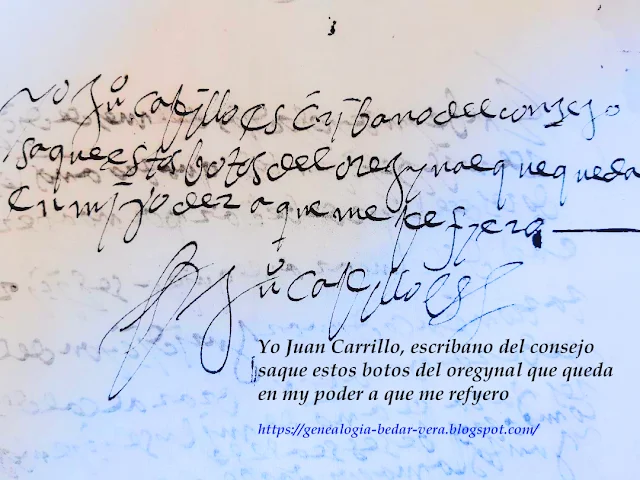 Yo Juº carrillo escribano del conzejo
saque estos botos del oregynal que queda
en mj poder a que me refyero
Juº carrillo es
Yo Juan Carrillo, escribano del consejo
saque estos botos del oregynal que queda
en my poder a que me refyero
https://genealogia-bedar-vera.blogspot.com/